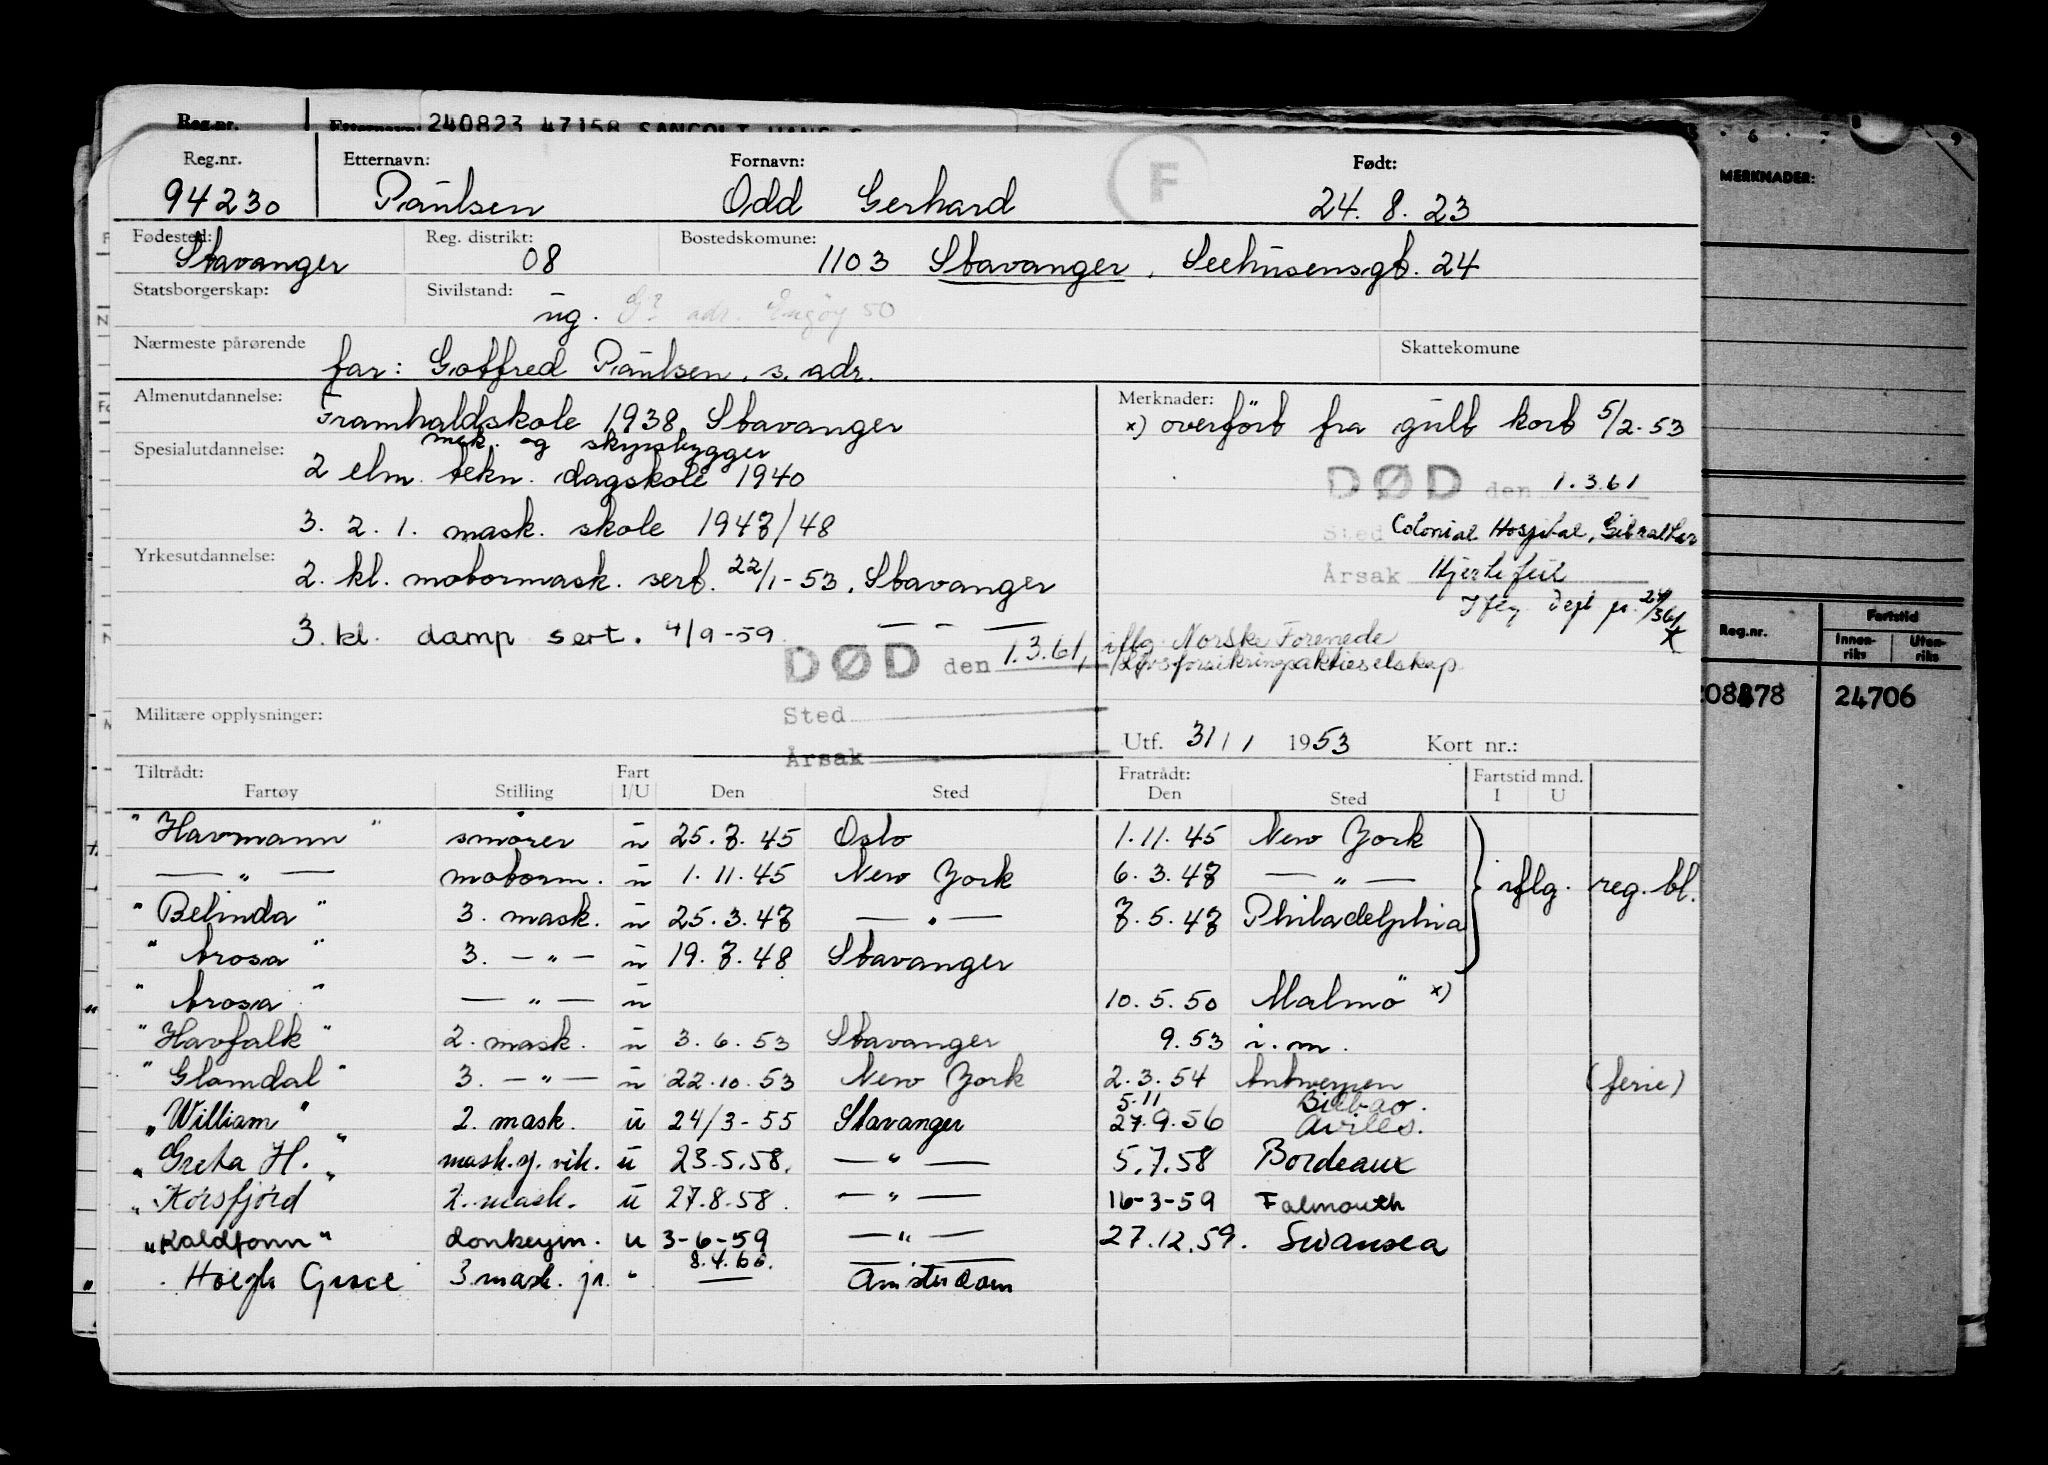 Reg.nr. Etternavn: 240823 47158 SANGOLT HANS
Reg.nr. Etternavn: Fornavn: F Født:
94230 Paulsen Odd Gerhard 24. 8. 23
Fødested: Reg. distrikt: Bostedskomune:
Stavanger 08 1103 Stavanger, Seehusensgt. 24
Statsborgerskap: Sivilstand:
ug. adr. Engøy 50
Nærmeste pårørende Skattekomune
far: Gottfred Paulsen, s. adr.
Almenutdannelse: Merknader:
Framhaldskole 1938 Stavanger x) overfört fra gult kort 5/2-53
mek. og skipsbygger
Spesialutdannelse: 2 elm. tekn. dagskole 1940
DØD den 1.3.61
3. 2. 1. mask. skole 1947/48
Sted Colonial Hospital, Gibraltar
Yrkesutdannelse:
2. kl. motormask. sert. 22/1-53, Stavanger
Årsak Hjertefeil
3. kl. damp sert. 4/9-59 — " —
DØD den 1.3.61, iflg. Norske Forenede
Livsforsikringsaktieselskap
Militære opplysninger: Sted
Utf. 31/1 1953 Kort nr.:
Årsak
Tiltrådt: Fart Fratrådt: Fartstid mnd.
Fartøy Stilling I/U Den Sted Den Sted I U
"Havmann" smører u 25.7.45 Oslo 1.11.45 New York
— " — motorm. u 1.11.45 New York 6.3.47 — " — iflg. reg. bl.
"Belinda" 3. mask. u 25.3.47 — " — 7.5.47 Philadelphia
"Arosa" 3. — " — u 19.7.48 Stavanger
"Arosa" — " — u 10.5.50 Malmö x)
"Havfalk" 2. mask. u 3.6.53 Stavanger 9.53 i.m.
"Glomdal" 3. — " — u 22.10.53 New York 2.3.54 Antwerpen (ferie)
5.11 Bilbao.
"William" 2. mask. u 24/3-55 Stavanger 27.9.56 Aviles.
"Greta H." mask. u 23.5.58. — " — 5.7.58 Bordeaux
"Korsfjord 2. mask. u 27.8.58. — " — 16-3-59 Falmouth
"Kaldfonn" donkeym. u 3-6-59 — " — 27.12.59. Swansea
8.4.60.
Höegh Grace 3 mask. jr. " — Amsterdam
6 9
MERKNADER:
Reg.nr. Fartstid
Innenriks Utenriks
24706